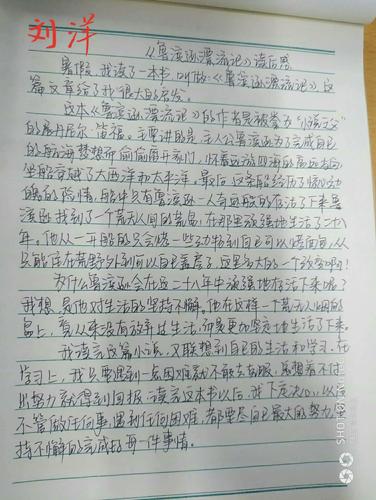 刘洋
《鲁滨逊漂流记》读后感
暑假,我读了一本书,叫做《鲁滨逊漂流记》,这
篇文章给了我很大的启发。
这本《鲁滨逊漂流记》的作者是被誉为"小说之父"
的丹尼尔·笛福。主要讲的是:主人公鲁滨逊为了完成自己
的航海梦想而偷偷离开家门,怀着远游四海的高远志向
坐船穿越了大西洋和太平洋。最后,这条船经历了惊心动
魄的险情,船中只有鲁滨逊一人奇迹般的存活了下来鲁
滨逊找到了一个荒无人间的荒岛,在那里顽强地生活了二十八
年。他从一开始的只会
只能住在荒野外到可以自己盖房子,这是多大的一个改变啊!
为什么鲁滨逊会在这二十八年中顽强地存活下来呢?
我想是他对生活的坚持不懈。他在这样一个荒无人烟的
岛上,看从来没有放弃过生活,而是更加坚定地生活了下来。
我读完这篇小说,又联想到自己的生活和学习,在
学习上,我只要遇到一点困难就不敢去克服,总想着不付
出努力就得到回报。读完这本书以后,我下定决心,以后
不管做任何事,遇到任何困难,都要尽自己最大的努力,坚
持不懈的完成好每一件事情。
SHOT ON